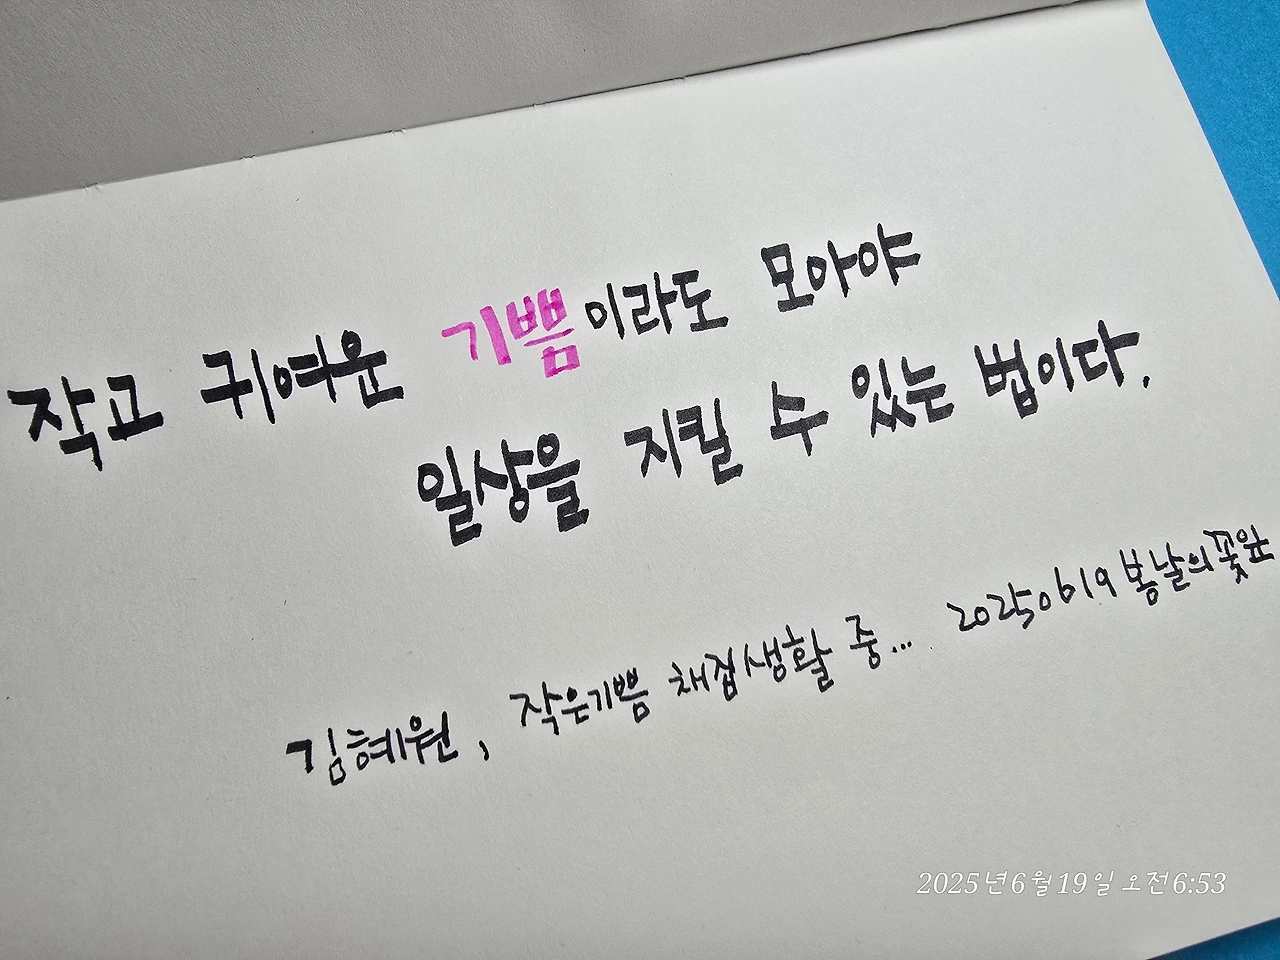 작고 귀여운 기쁨이라도 모아야
일상을 지킬 수 있는 법이다.
김혜원, 작은기쁨 채집생활 중... 20250619 봄날의꽃잎
2025년 6월 19일 오전 6:53